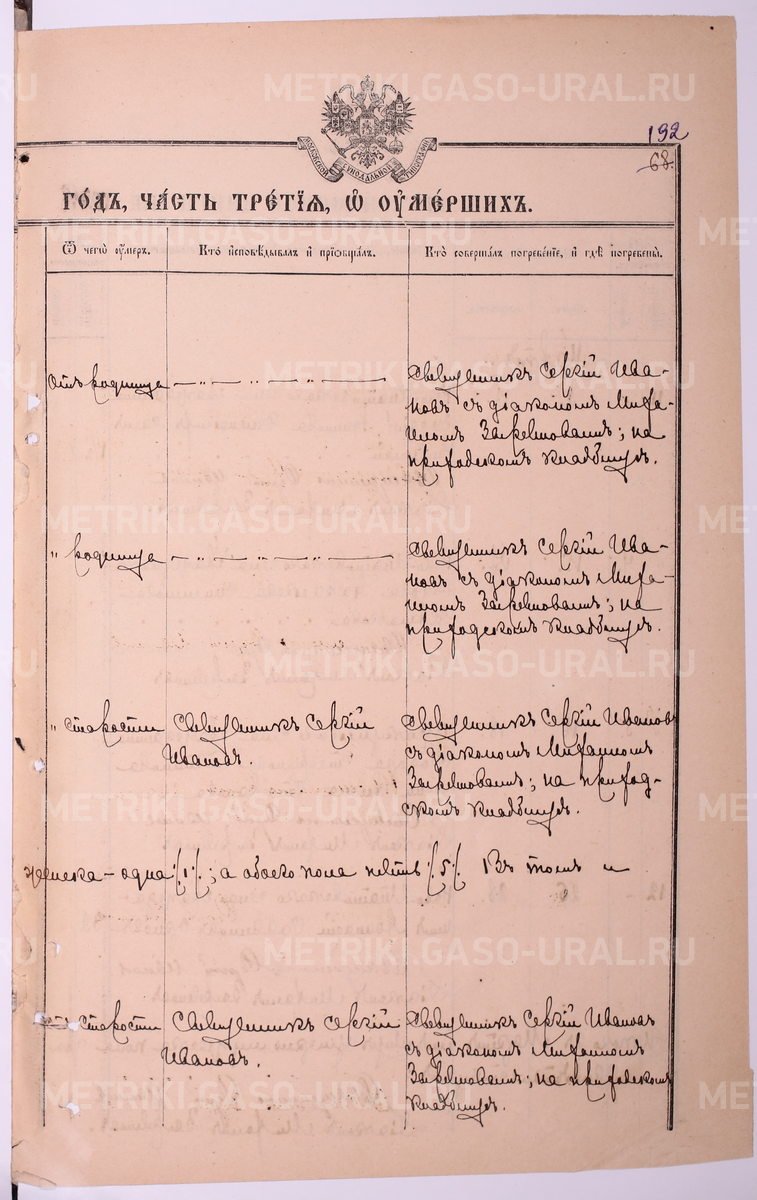 METRIKI.GASO-URAL.RU
192
68.
МОСКОВСКОЙ СУНОДАЛЬНОЙ ТИПОГРАФІИ
го́дъ, ча́сть тре́тїѧ, ѡ҆ ᲂу҆ме́ршихъ.
Ѿ чегѡ̀ ᲂу҆́меръ.
Кто̀ и҆сповѣ́дывалъ и҆ прїѡбща́лъ.
Кто̀ соверша́лъ погребе́нїе, и҆ гдѣ̀ погребены̀.
Отъ родимца — „ — „ — „ —
Священникъ Сергій Ива-
новъ съ діакономъ Миха-
иломъ
на
приходскомъ кладбищѣ.
" родимца — „ — „ — „ —
Священникъ Сергій Ива-
новъ съ діакономъ Миха-
иломъ
на
приходскомъ кладбищѣ.
" старости
Священникъ Сергій
Ивановъ.
Священникъ Сергій Ивановъ
съ діакономъ Михаиломъ
на приход-
скомъ кладбищѣ.
женска – одна ./.1./.; а обоего пола пять ./.5./. Въ томъ и
старости
Священникъ Сергій
Ивановъ.
Священникъ Сергій Ивановъ
съ діакономъ Михаиломъ
на приходскомъ
кладбищѣ.